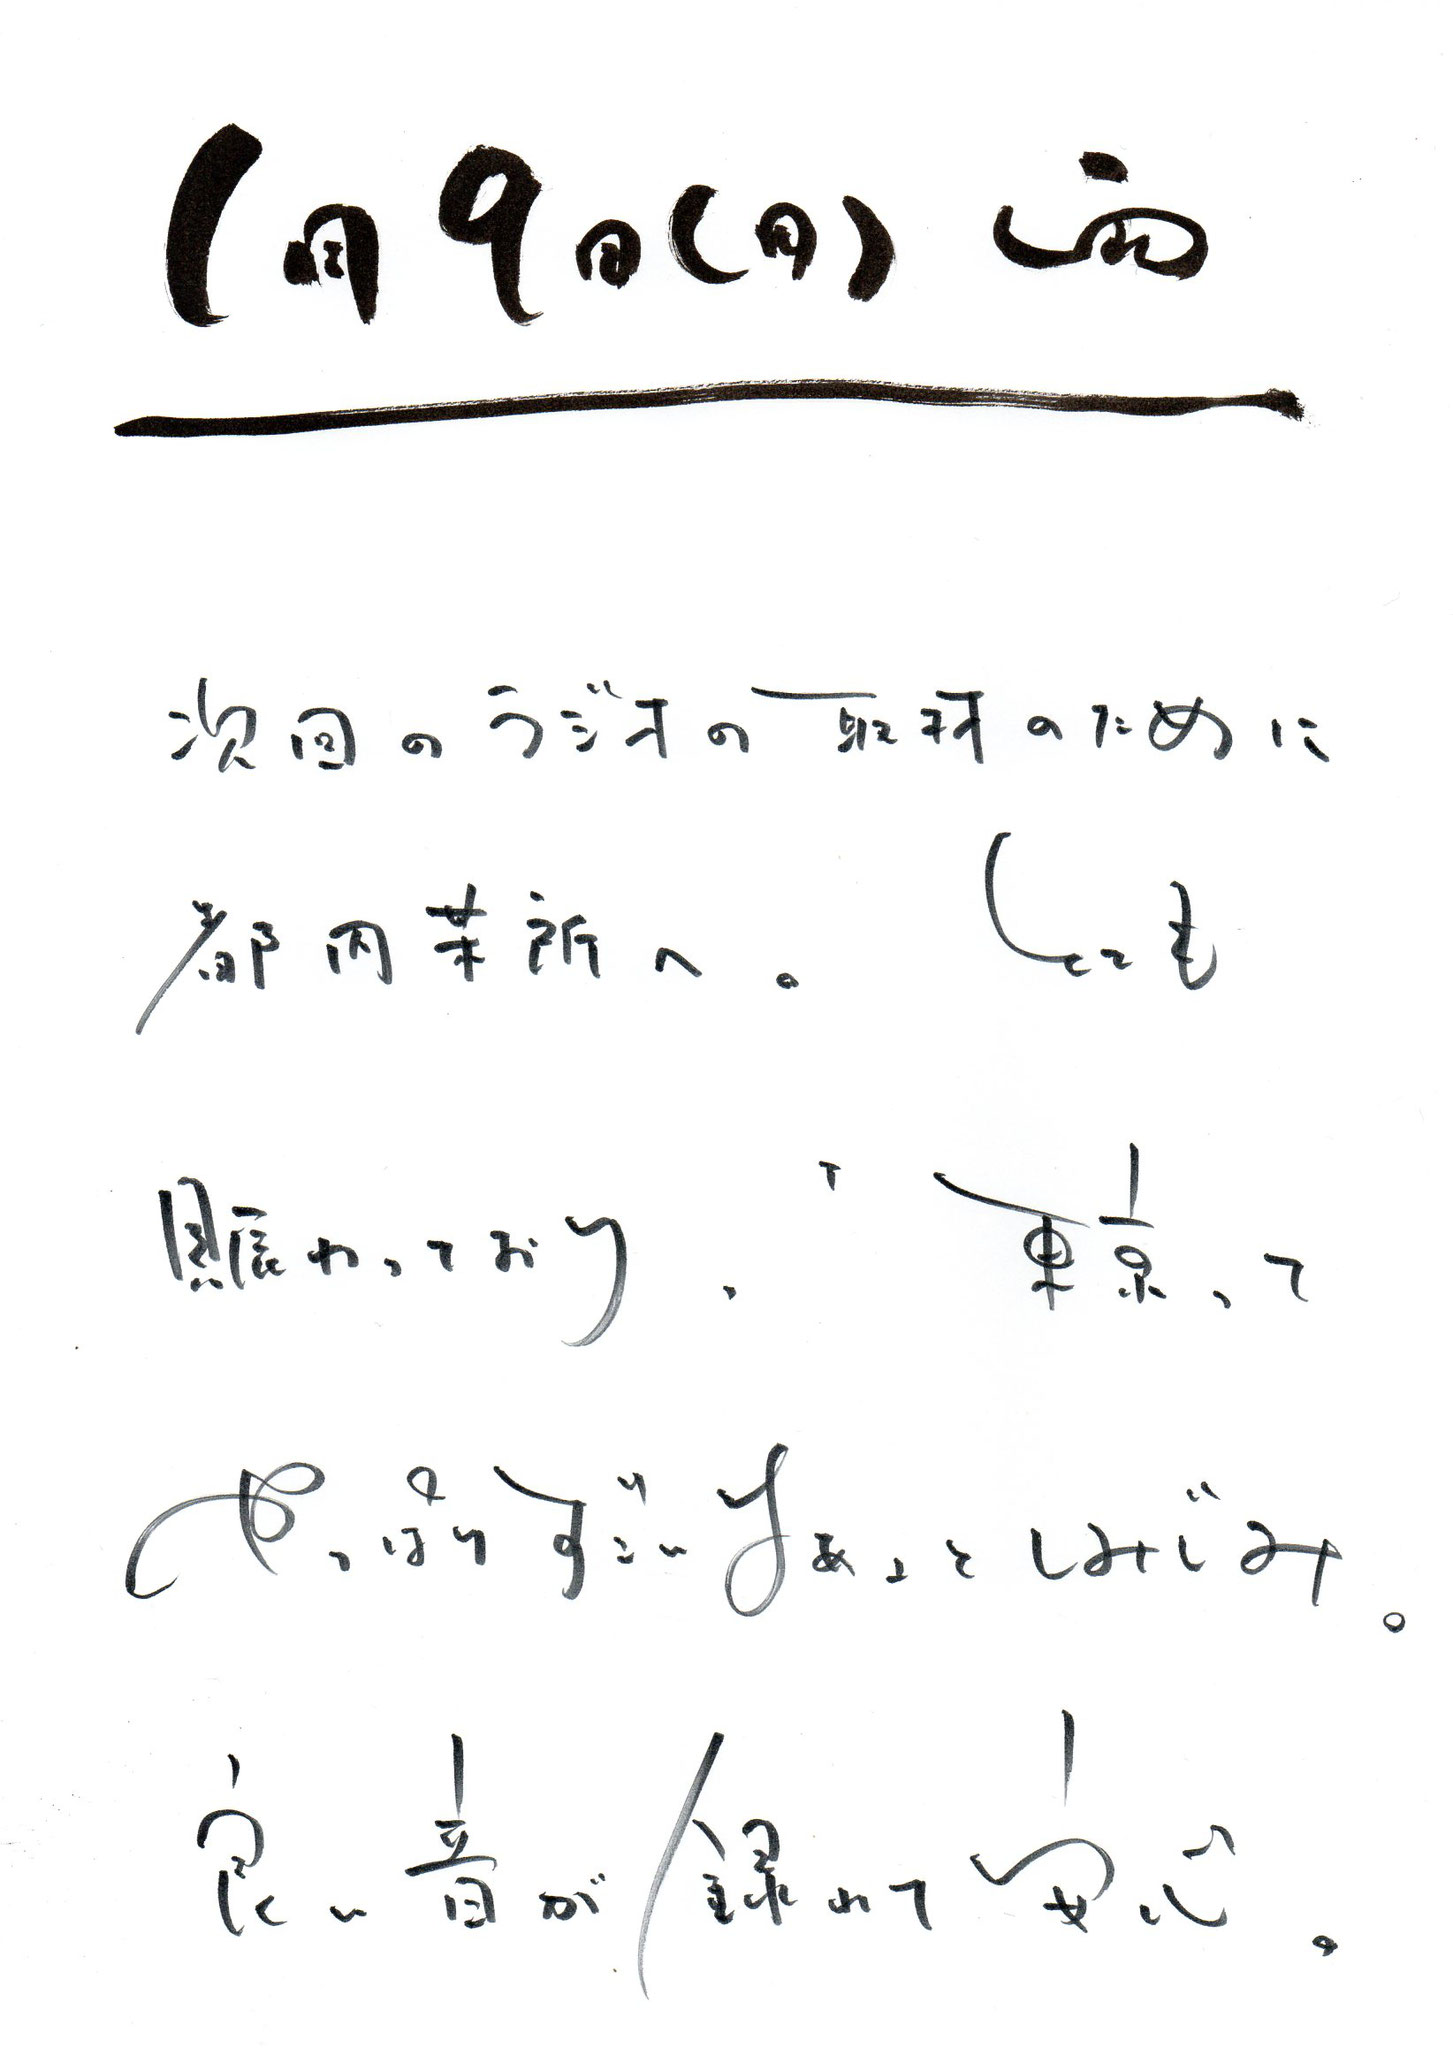 1月9日(月)
次回のラジオの取材のために
都内某所へ。とても
賑わっており、「東京って
やっぱりすごいなあ」としみじみ。
良い音が録れて安心。